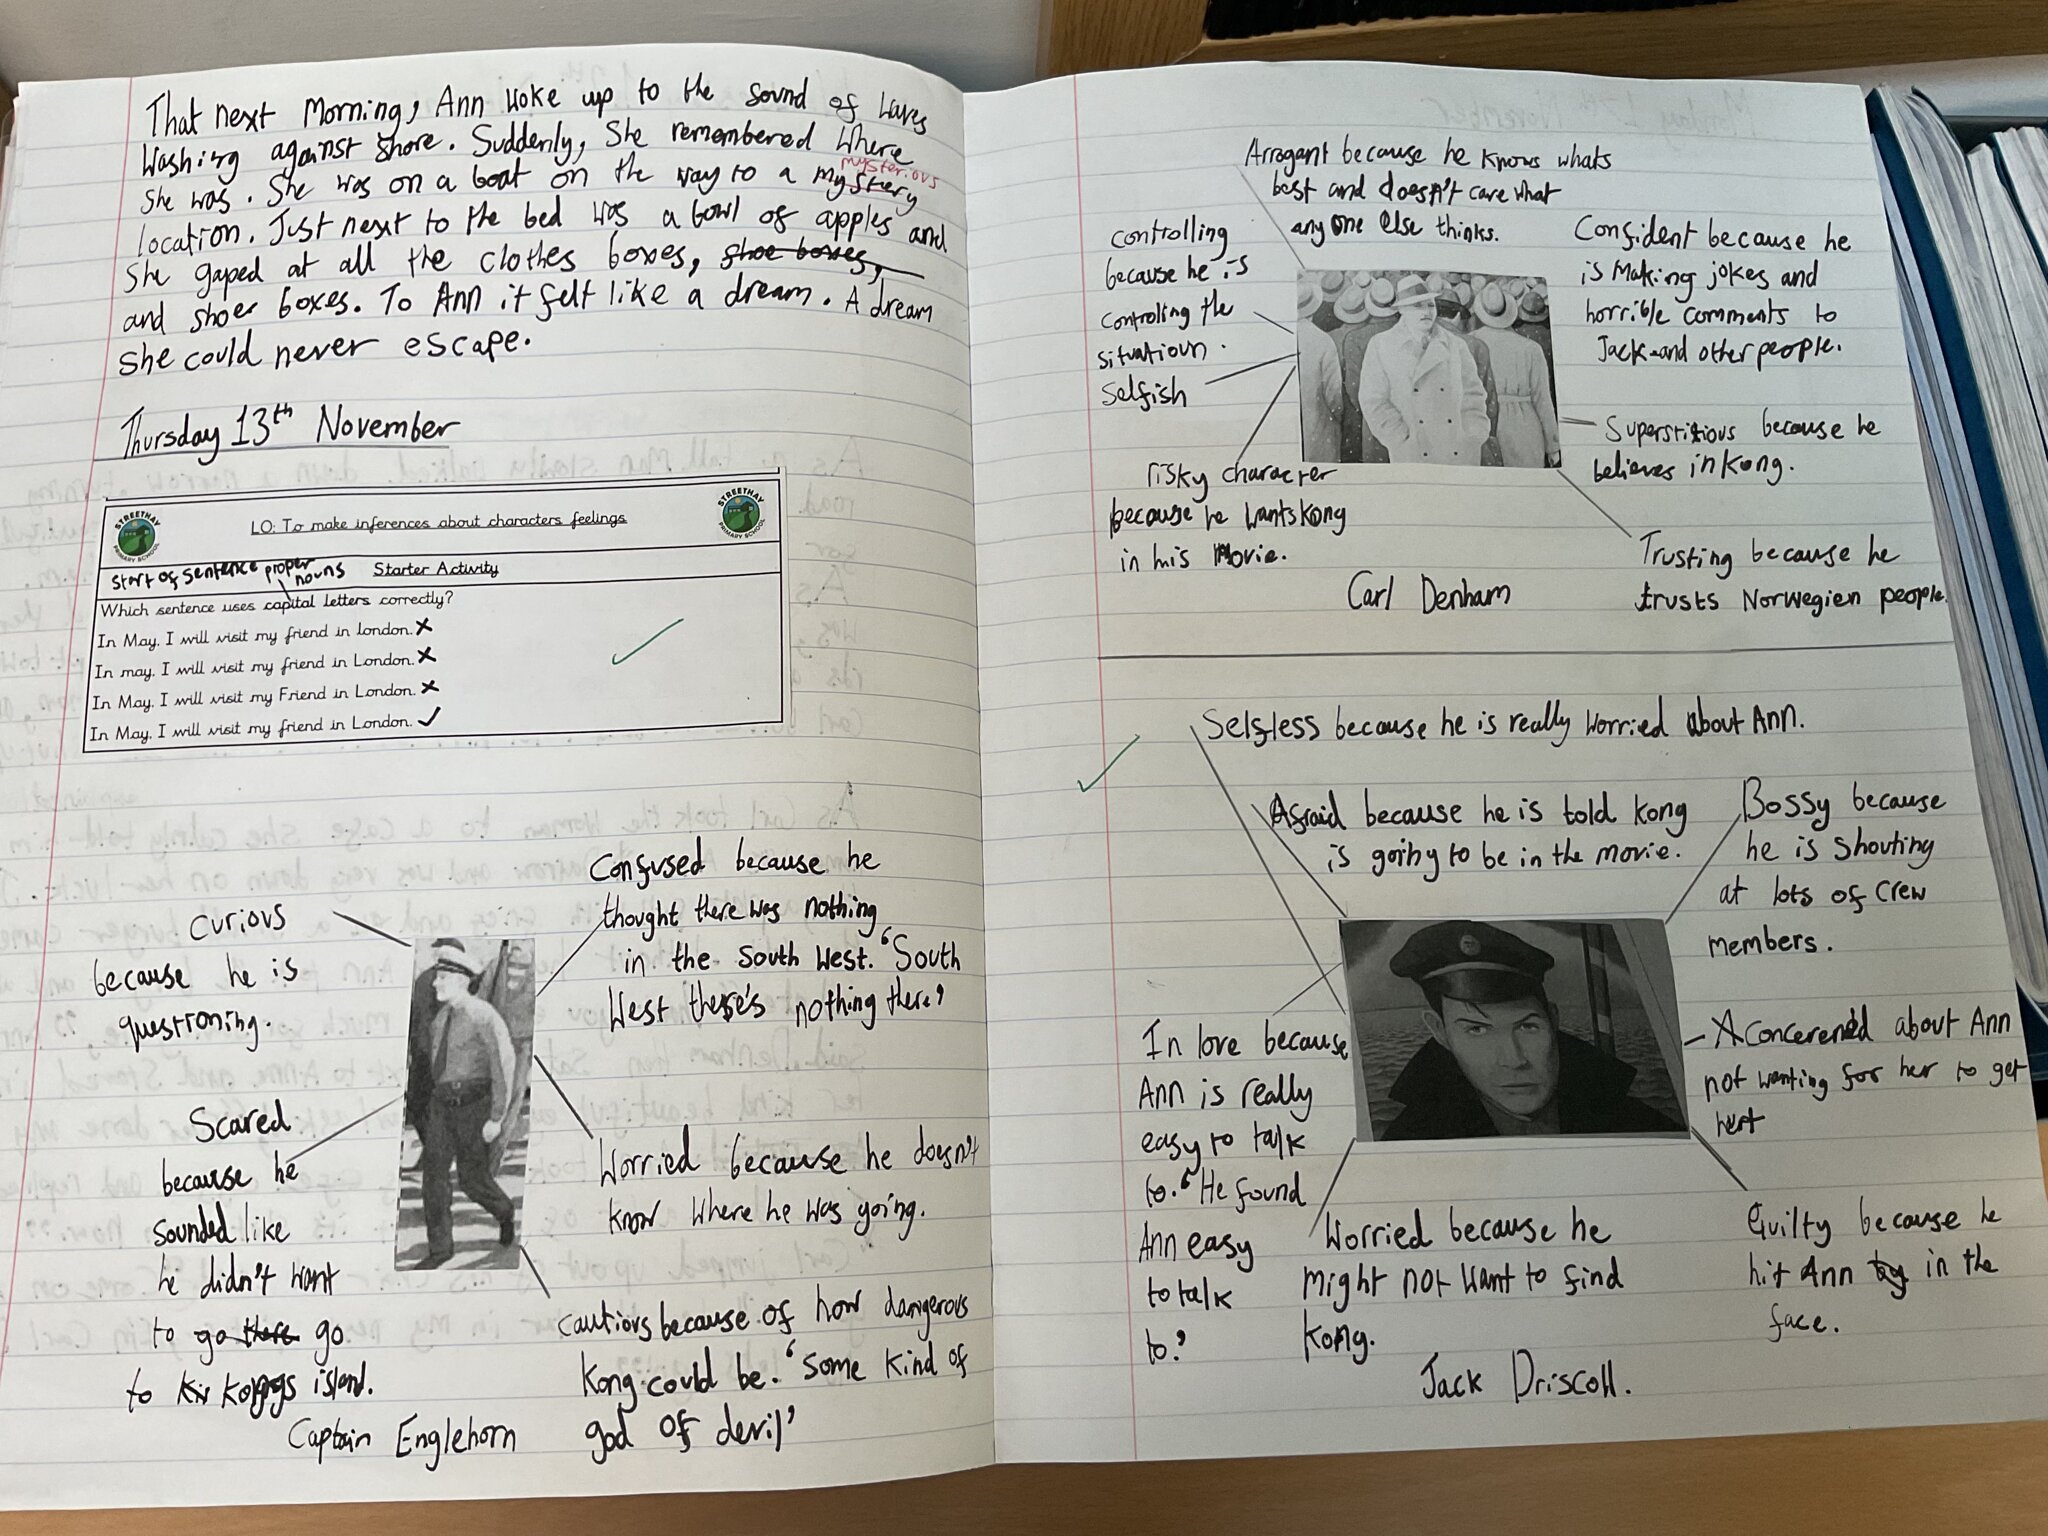 That next Morning, Ann woke up to the sound of waves
washing against shore. Suddenly, She remembered where
mysterious
she was. She was on a boat on the way to a mystery
location. Just next to the bed was a bowl of apples and
she gaped at all the clothes boxes, shoe boxes,
and shoer boxes. To Ann it felt like a dream. A dream
she could never escape.
Thursday 13th November
STREETHAY
PRIMARY SCHOOL
LO: To make inferences about characters feelings
STREETHAY
PRIMARY SCHOOL
start of sentence proper
nouns
Starter Activity
Which sentence uses capital letters correctly?
In May, I will visit my friend in london. ✗
In may, I will visit my friend in London. ✗
In May, I will visit my Friend in London. ✗
In May, I will visit my friend in London. ✓
Curious
because he is
questioning.
Confused because he
thought there was nothing
in the South West. 'South
West there's nothing there'
Scared
because he
sounded like
he didn't want
to go there go
to Kongs island.
Worried because he doesn't
know where he was going.
cautious because of how dangerous
Kong could be. 'Some kind of
god of devil'
Captain Englehorn
Arrogant because he knows whats
best and doesn't care what
any one else thinks.
controlling
because he is
controling the
situatioun.
Selfish
Confident because he
is making jokes and
horrible comments to
Jack and other people.
risky character
because he wants kong
in his Movie.
Superstitious because he
believes in Kong.
Trusting because he
trusts Norwegien people.
Carl Denham
Selfless because he is really worried about Ann.
Afraid because he is told kong
is going to be in the movie.
Bossy because
he is shouting
at lots of crew
members.
In love because
Ann is really
easy to talk
to. 'He found
Ann easy
to talk
to.'
Concerened about Ann
not wanting for her to get
hert
Worried because he
might not want to find
kong.
Guilty because he
hit Ann in the
face.
Jack Driscoll.